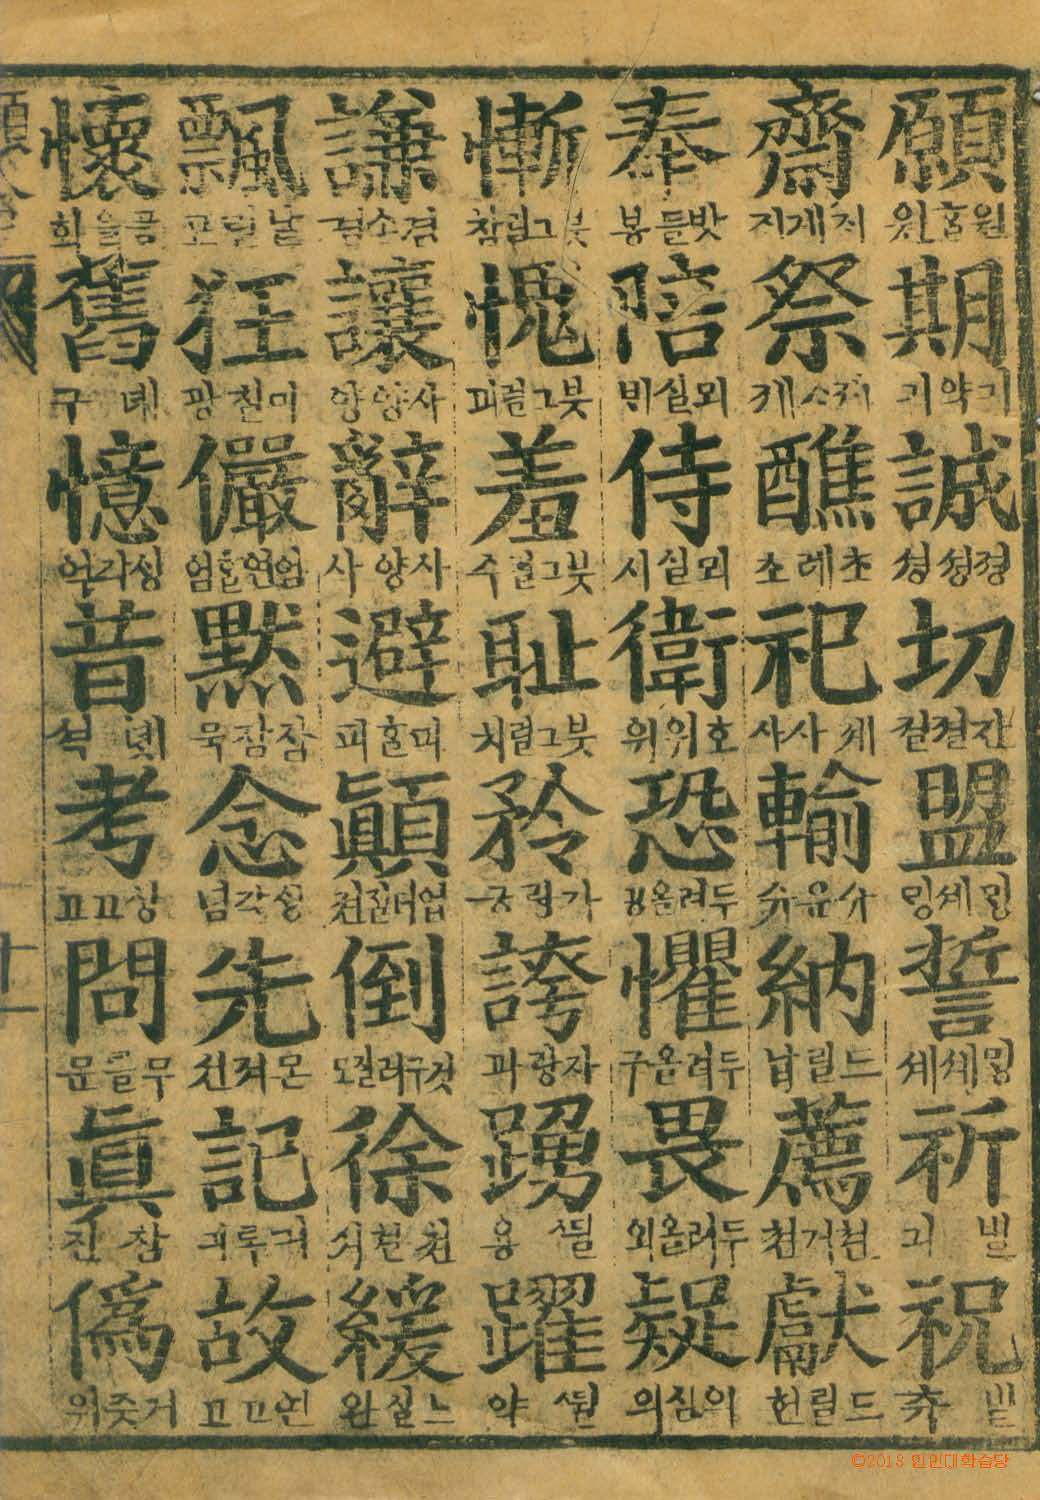 願 원홀원 期 기약긔 誠 졍셩셩 切 간졀졀 盟 밍셰밍 誓 밍셰셰 祈 빌긔 祝 빌츅
齋 지계지 祭 졔ᄉ졔 醮 초례초 祀 졔사사 輸 슈운슈 納 드릴납 薦 쳔거쳔 獻 드릴헌
奉 밧들봉 陪 뫼실비 侍 뫼실시 衛 호위위 恐 두려올공 懼 두려올구 畏 두려올외 疑 의심의
慚 붓그럴참 愧 붓그럴괴 羞 붓그럴슈 耻 붓그럴치 矜 쟈랑긍 誇 자랑과 踴 ᄯᅱᆯ용 躍 ᄯᅱᆯ약
謙 겸소겸 讓 사양양 辭 사양사 避 피홀피 顚 업더질젼 倒 것구러질도 徐 쳔쳔셔 緩 느실완
飄 날릴표 狂 미칠광 儼 엄연홀엄 默 잠잠묵 念 싱각념 先 몬져션 記 긔록긔 故 연고고
懷 품을회 舊 녜구 憶 싱각억 昔 녯셕 考 샹고고 問 무를문 眞 참진 僞 거즛위
十一
©2013 인민대학습당